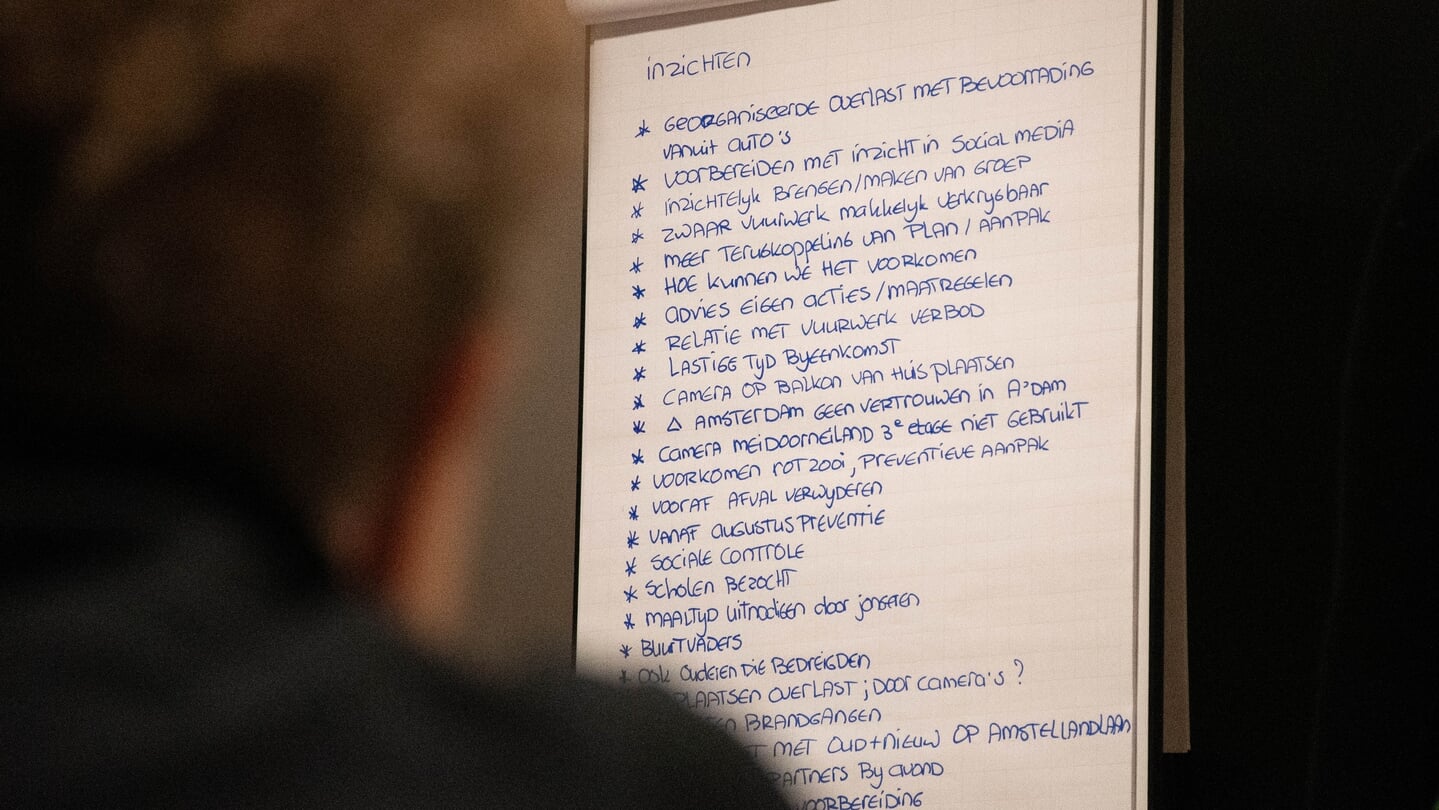 inzichten
* Georganiseerde overlast met bevoorrading
vanuit auto's
* voorbereiden met inzicht in social media
* inzichtelyk brengen/maken van groep
* zwaar vuurwerk makkelyk verkrygbaar
* meer terugkoppeling van plan / aanpak
* Hoe kunnen we het voorkomen
* advies eigen acties/maatregelen
* relatie met vuurwerk verbod
* lastige tyd byeenkomst
* camera op balkon van huis plaatsen
* △ Amsterdam geen vertrouwen in A'dam
* camera meidoorneiland 3e etage niet gebruikt
* voorkomen rotzooi, preventieve aanpak
* vooraf afval verwyderen
* vanaf augustus preventie
* sociale controle
* scholen bezocht
* maaltyd uitnodigen door jongeren
* Buurtvaders
* ook ouderen die bedreigden
plaatsen overlast ; door camera's ?
brandgangen
met oud+nieuw op Amstellandlaan
partners by avond
voorbereiding